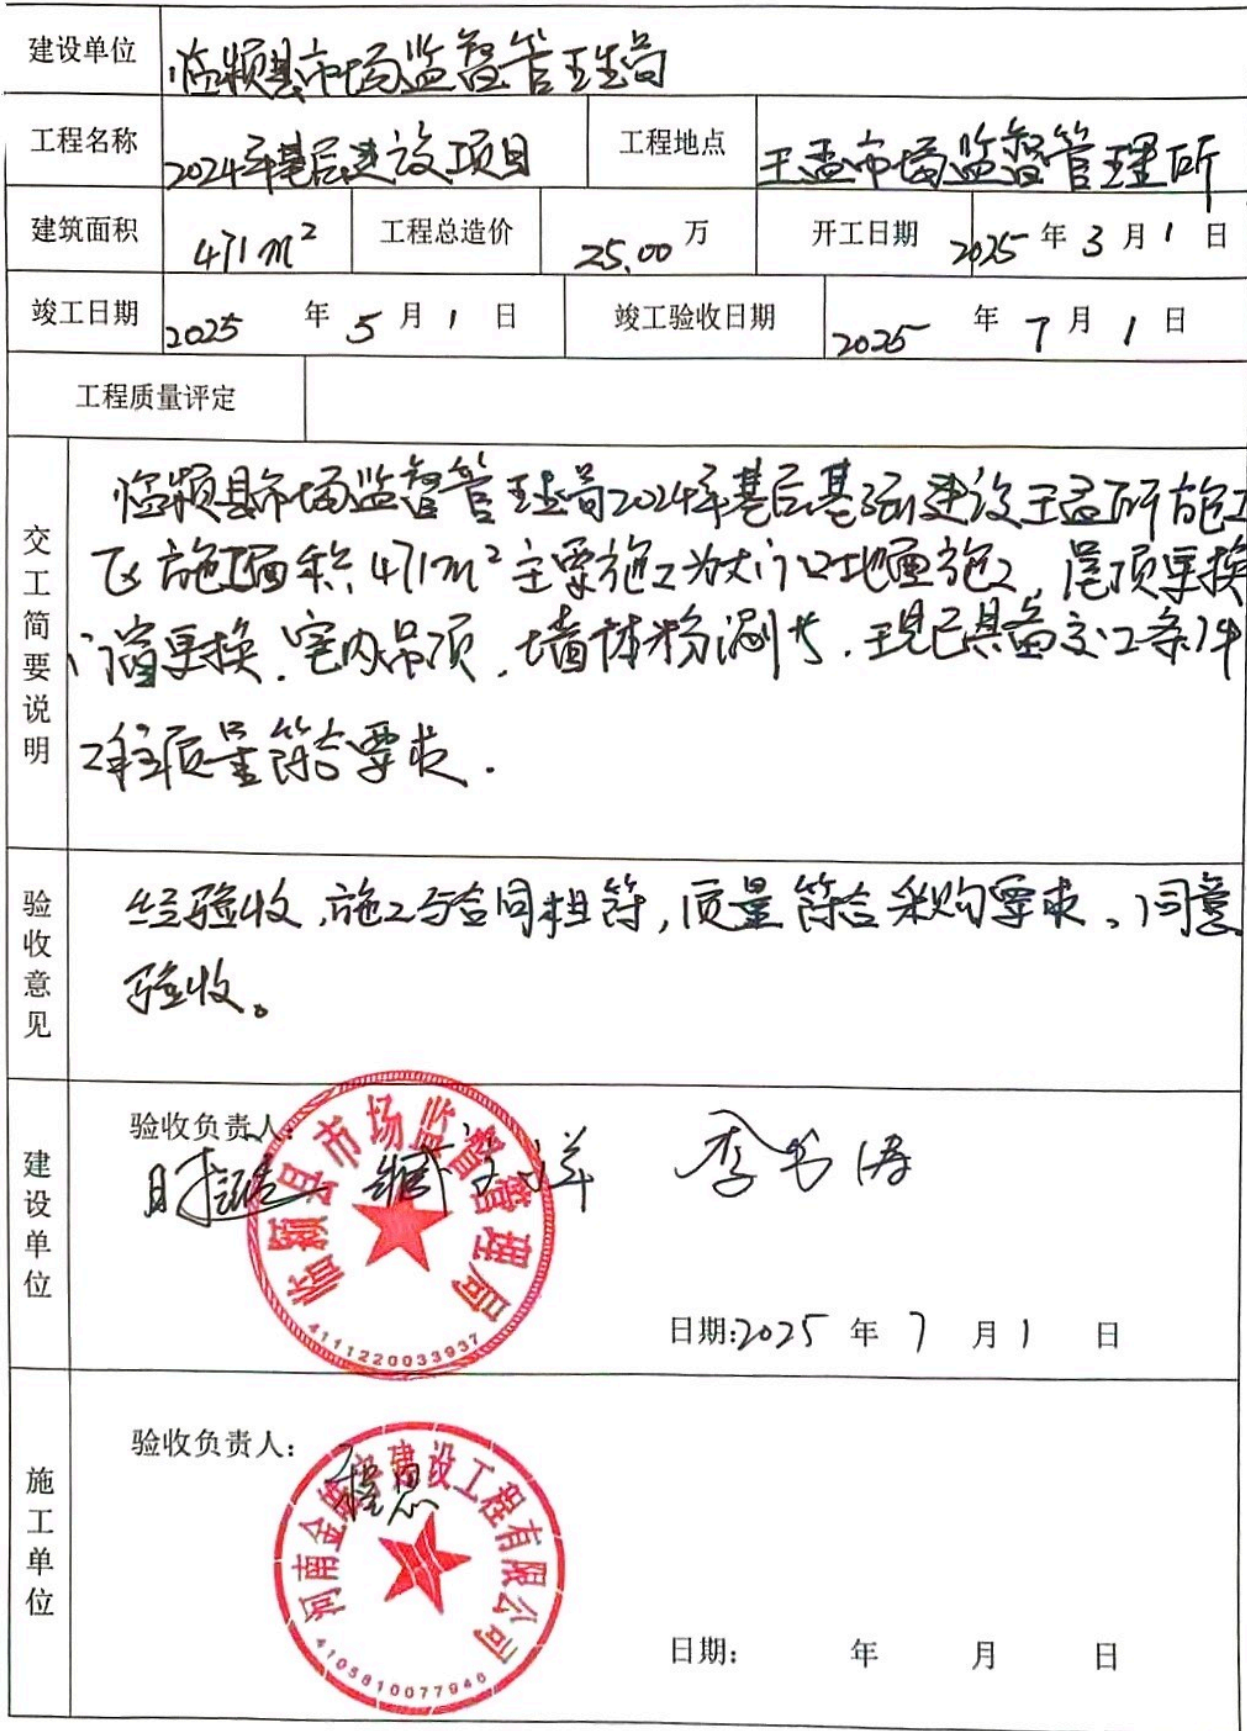 建设单位 临颍县市场监督管理局
工程名称 2024年基层建设项目 工程地点 王孟市场监督管理所
建筑面积 471m² 工程总造价 25.00 万 开工日期 2025年3月1日
竣工日期 2025年5月1日 竣工验收日期 2025年7月1日
工程质量评定
交工简要说明
临颍县市场监督管理局2024年基层基础建设王孟所施工
施工面积471m²主要施工为大门口地面施工,屋顶更换
门窗更换.室内吊顶,墙体粉刷等.现已具备交工条件
工程质量符合要求.
验收意见
经验收,施工与合同相符,质量符合采购要求。同意
验收。
建设单位
验收负责人:
李书涛
临颍县市场监督管理局
4111220033937
日期:2025年7月1日
施工单位
验收负责人:
程思
河南金建设工程有限公司
4105810077946
日期: 年 月 日